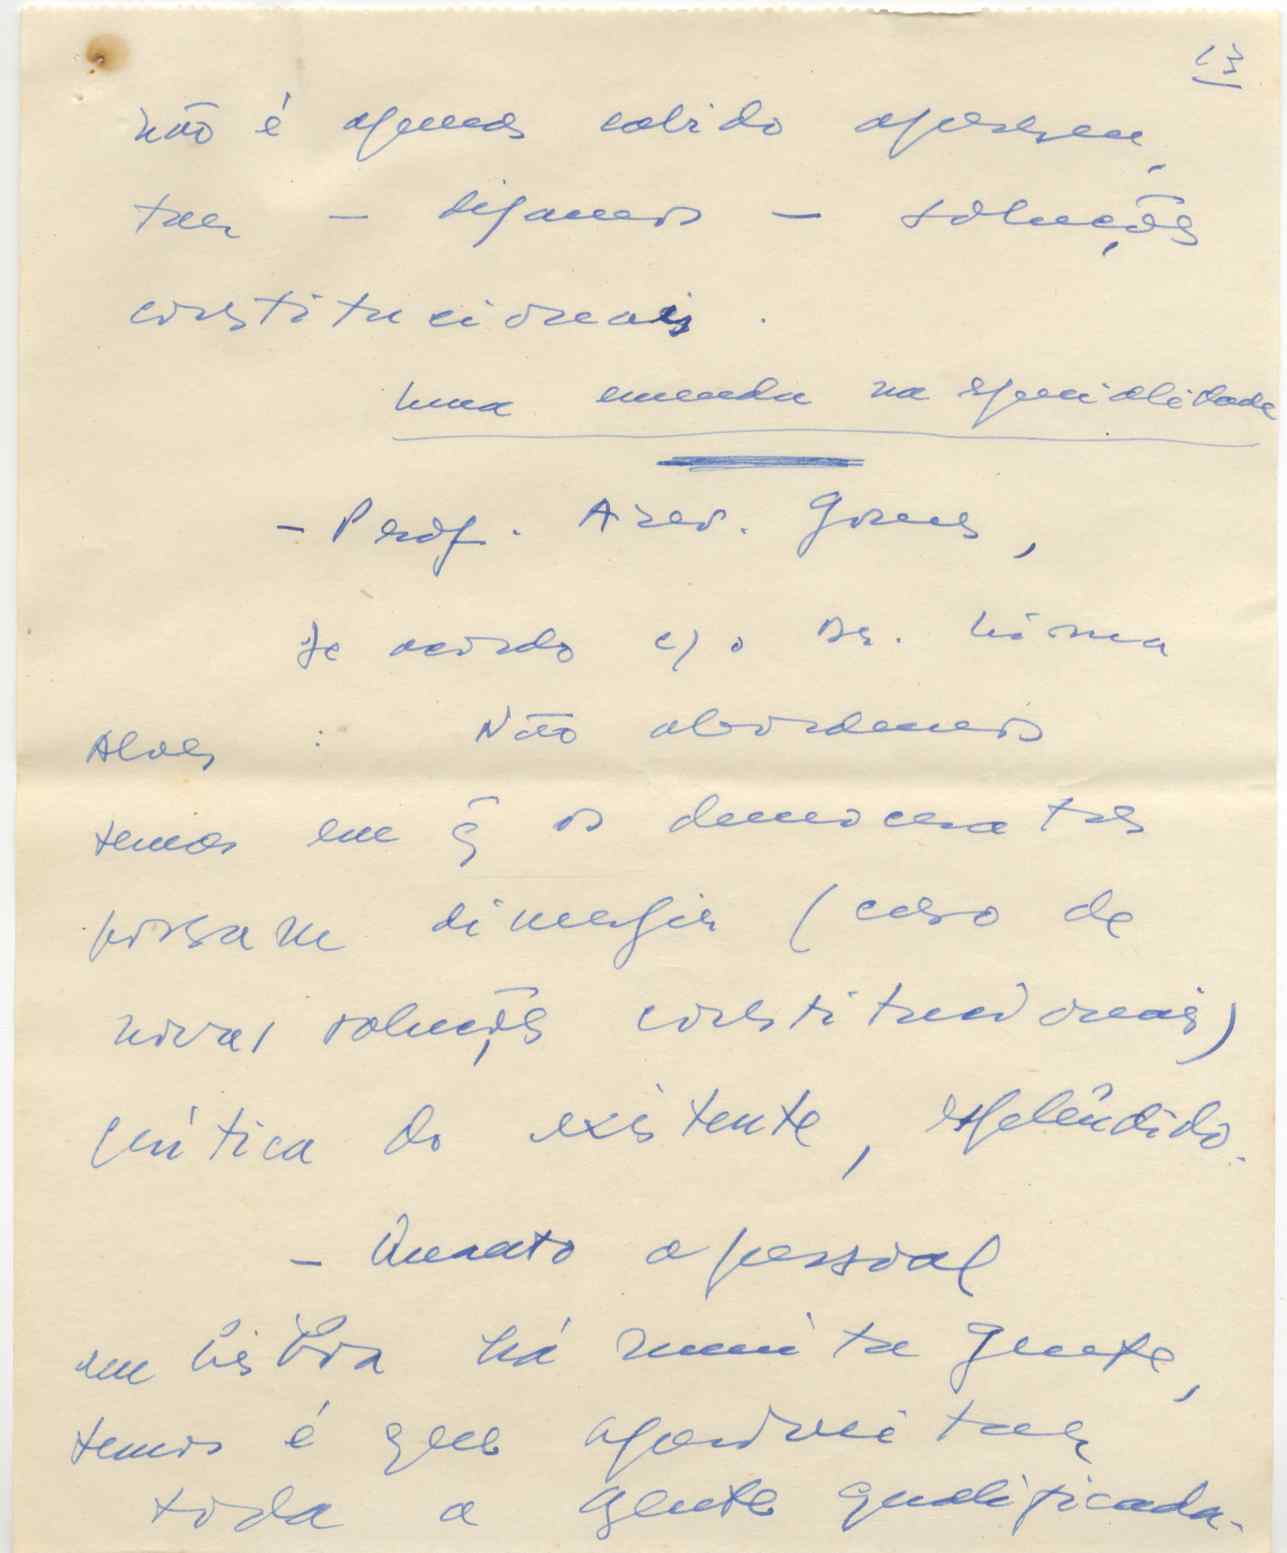 13
não é apenas cabido apresen,
tar — digamos — soluções
constitucionais.
Uma emenda na especialidade
- Prof. Azev. Gomes,
de acordo c/ o Dr. Lima
Alves : Não abordemos
temas em q̃ os democratas
possam divergir (caso de
novas soluções constitucionais)
crítica do existente, esplêndido.
- Quanto a pessoal
em Lisboa há muita gente,
temos é que aproveitar
toda a gente qualificada.